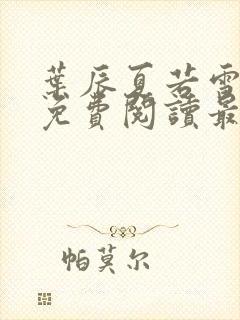 葉辰夏若雪
免費閱讀最
帕莫尔